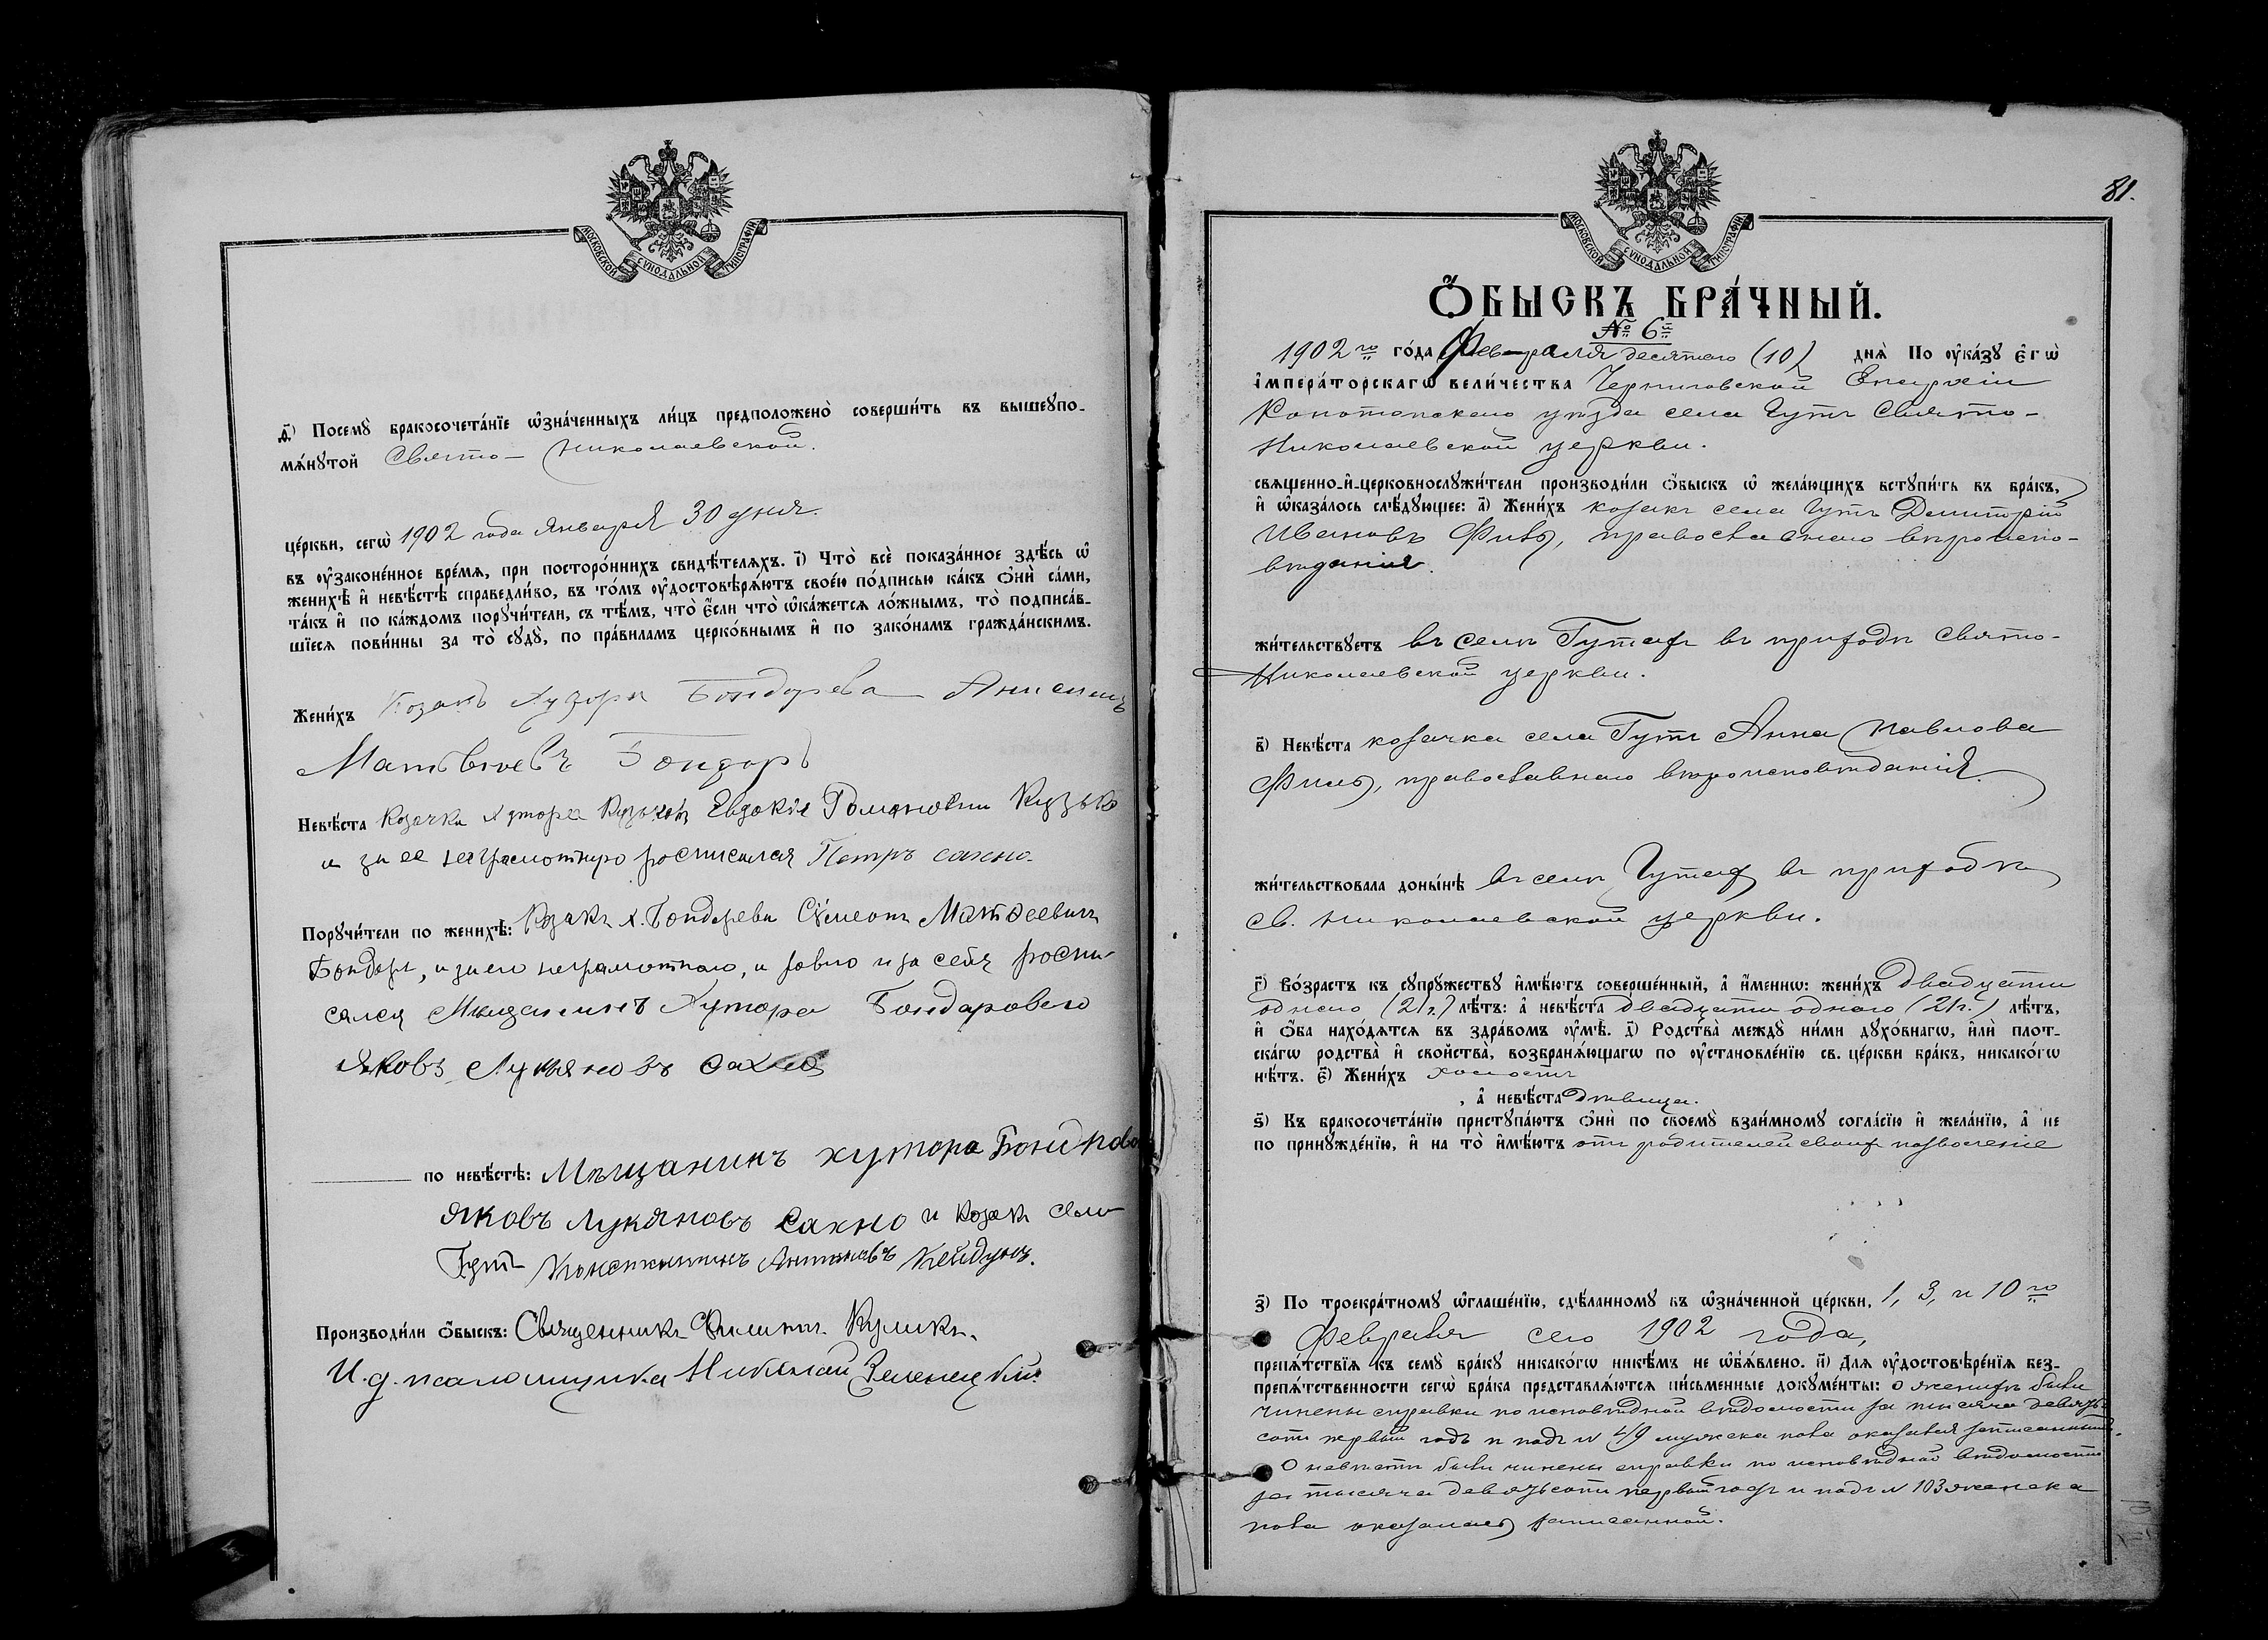 МОСКОВСКОЙ СѴНОДАЛЬНОЙ ТИПОГРАФІИ
д҃) Посемꙋ̀ бракосочета́нїе ѡ҆зна́ченныхъ ли́цъ предположено̀ соверши́ть въ вышеꙋпо-
мѧ́нꙋтой Свято-Николаевской
це́ркви, сегѡ̀ 1902 года Января 30 дня.
въ ᲂу҆законе́нное вре́мѧ, при посторо́ннихъ свидѣ́телѧхъ. і҃) Что̀ всѐ показа́нное здѣ́сь ѡ҆
женихѣ̀ и҆ невѣ́стѣ справедли́во, въ то́мъ ᲂу҆достовѣрѧ́ютъ свое́ю по́дписью ка́къ ѻ҆нѝ са́ми,
та́къ и҆ по ка́ждомъ порꙋчи́тели, съ тѣ́мъ, что̀ є҆́сли что̀ ѡ҆ка́жетсѧ ло́жнымъ, то̀ подписа́в-
шїесѧ пови́нны за то̀ сꙋдꙋ̀, по пра́виламъ церко́внымъ и҆ по зако́намъ гражда́нскимъ.
Жени́хъ Козакъ Хутора Бондорева Анисимъ
Матвѣевъ Бондорь
Невѣ́ста Козачка Хутора Евдокія Романовна Кузько
и за ее неграмотную росписался Петръ Сахно.
Порꙋчи́тели по женихѣ̀: Козакъ х. Бондарева Сѵмеонъ Матѳеевичъ
Бондарь, и за его неграмотнаго, и ровно и за себя роспи-
сался Мещанинъ Хутора Бондаровего
Яковъ Лукяновъ Сахно
по невѣ́стѣ: Мѣщанинъ хутора
Яковъ Лукяновъ Сахно и Козакъ села
Гутъ Константинъ Антоновъ Кейдунъ.
Производи́ли ѻ҆́быскъ: Священникъ Филиппъ Куликъ.
И. д. псаломщика Николай Зеленецкій
81.
МОСКОВСКОЙ СѴНОДАЛЬНОЙ ТИПОГРАФІИ
Ѻ҆́БЫСКЪ БРА́ЧНЫЙ.
№ 6й
1902го го́да Февраля десятого (10) днѧ̀ По ᲂу҆ка́зꙋ є҆гѡ̀
і҆мпера́торскагѡ вели́чества Черниговской Епархіи
Конотопского уѣзда села Гутъ Свято-
Николаевской церкви.
свѧщенно-и҆-церковнослꙋжи́тели производи́ли ѻ҆́быскъ ѡ҆ жела́ющихъ встꙋпи́ть въ бра́къ,
и҆ ѡ҆каза́лось слѣ́дꙋющее: а҃) Жени́хъ козакъ села Гутъ Димитрій
Ивановъ Филь, православного вѣроиспо-
вѣданія.
жи́тельствꙋетъ въ селѣ Гутахъ въ приходѣ Свято-
Николаевской церкви.
в҃) Невѣ́ста козачка села Гутъ Анна Павлова
Филь, православного вѣроисповѣданія.
жи́тельствовала доны́нѣ въ селѣ Гутахъ въ приходѣ
св. Николаевской церкви.
г҃) Во́зрастъ къ сꙋпрꙋ́жествꙋ и҆мѣ́ютъ соверше́нный, а҆ и҆́меннѡ: жени́хъ двадцати
одного (21г.) лѣ́тъ: а҆ невѣ́ста двадцати одного (21г.) лѣ́тъ,
и҆ ѻ҆́ба нахо́дѧтсѧ въ здра́вомъ ᲂу҆мѣ̀. д҃) Родства̀ междꙋ̀ ни́ми дꙋхо́внагѡ, и҆лѝ плот-
ска́гѡ родства̀ и҆ свойства̀, возбранѧ́ющагѡ по ᲂу҆становле́нїю св. це́ркви бра́къ, никако́гѡ
нѣ́тъ. є҃) Жени́хъ холостъ
, а҆ невѣ́ста дѣвица.
ѕ҃) Къ бракосочета́нїю пристꙋпа́ютъ ѻ҆нѝ по своемꙋ̀ взаи́мномꙋ согла́сїю и҆ жела́нїю, а҆ не
по принꙋжде́нїю, и҆ на то̀ и҆мѣ́ютъ отъ родителей своихъ позволеніе
з҃) По троекра́тномꙋ ѡ҆глаше́нїю, сдѣ́ланномꙋ въ ѡ҆зна́ченной це́ркви, 1, 3, и 10го
Февраля сего 1902 года,
препѧ́тствїѧ къ семꙋ̀ бра́кꙋ никако́гѡ никѣ́мъ не ѡ҆б̾ѧ́влено. и҃) Длѧ̀ ᲂу҆достовѣре́нїѧ без-
препѧ́тственности сегѡ̀ бра́ка представлѧ́ютсѧ пи́сьменные докꙋме́нты: о женихѣ были
чинены справки по исповѣдной вѣдомости за тысяча девять-
сотъ первый годъ и подъ № 49 мужска пола оказался записаннымъ.
О невѣстѣ были чинены справки по исповѣдной вѣдомости
за тысяча девятьсотъ первый годъ и подъ № 103 женска
пола оказалась записанной.